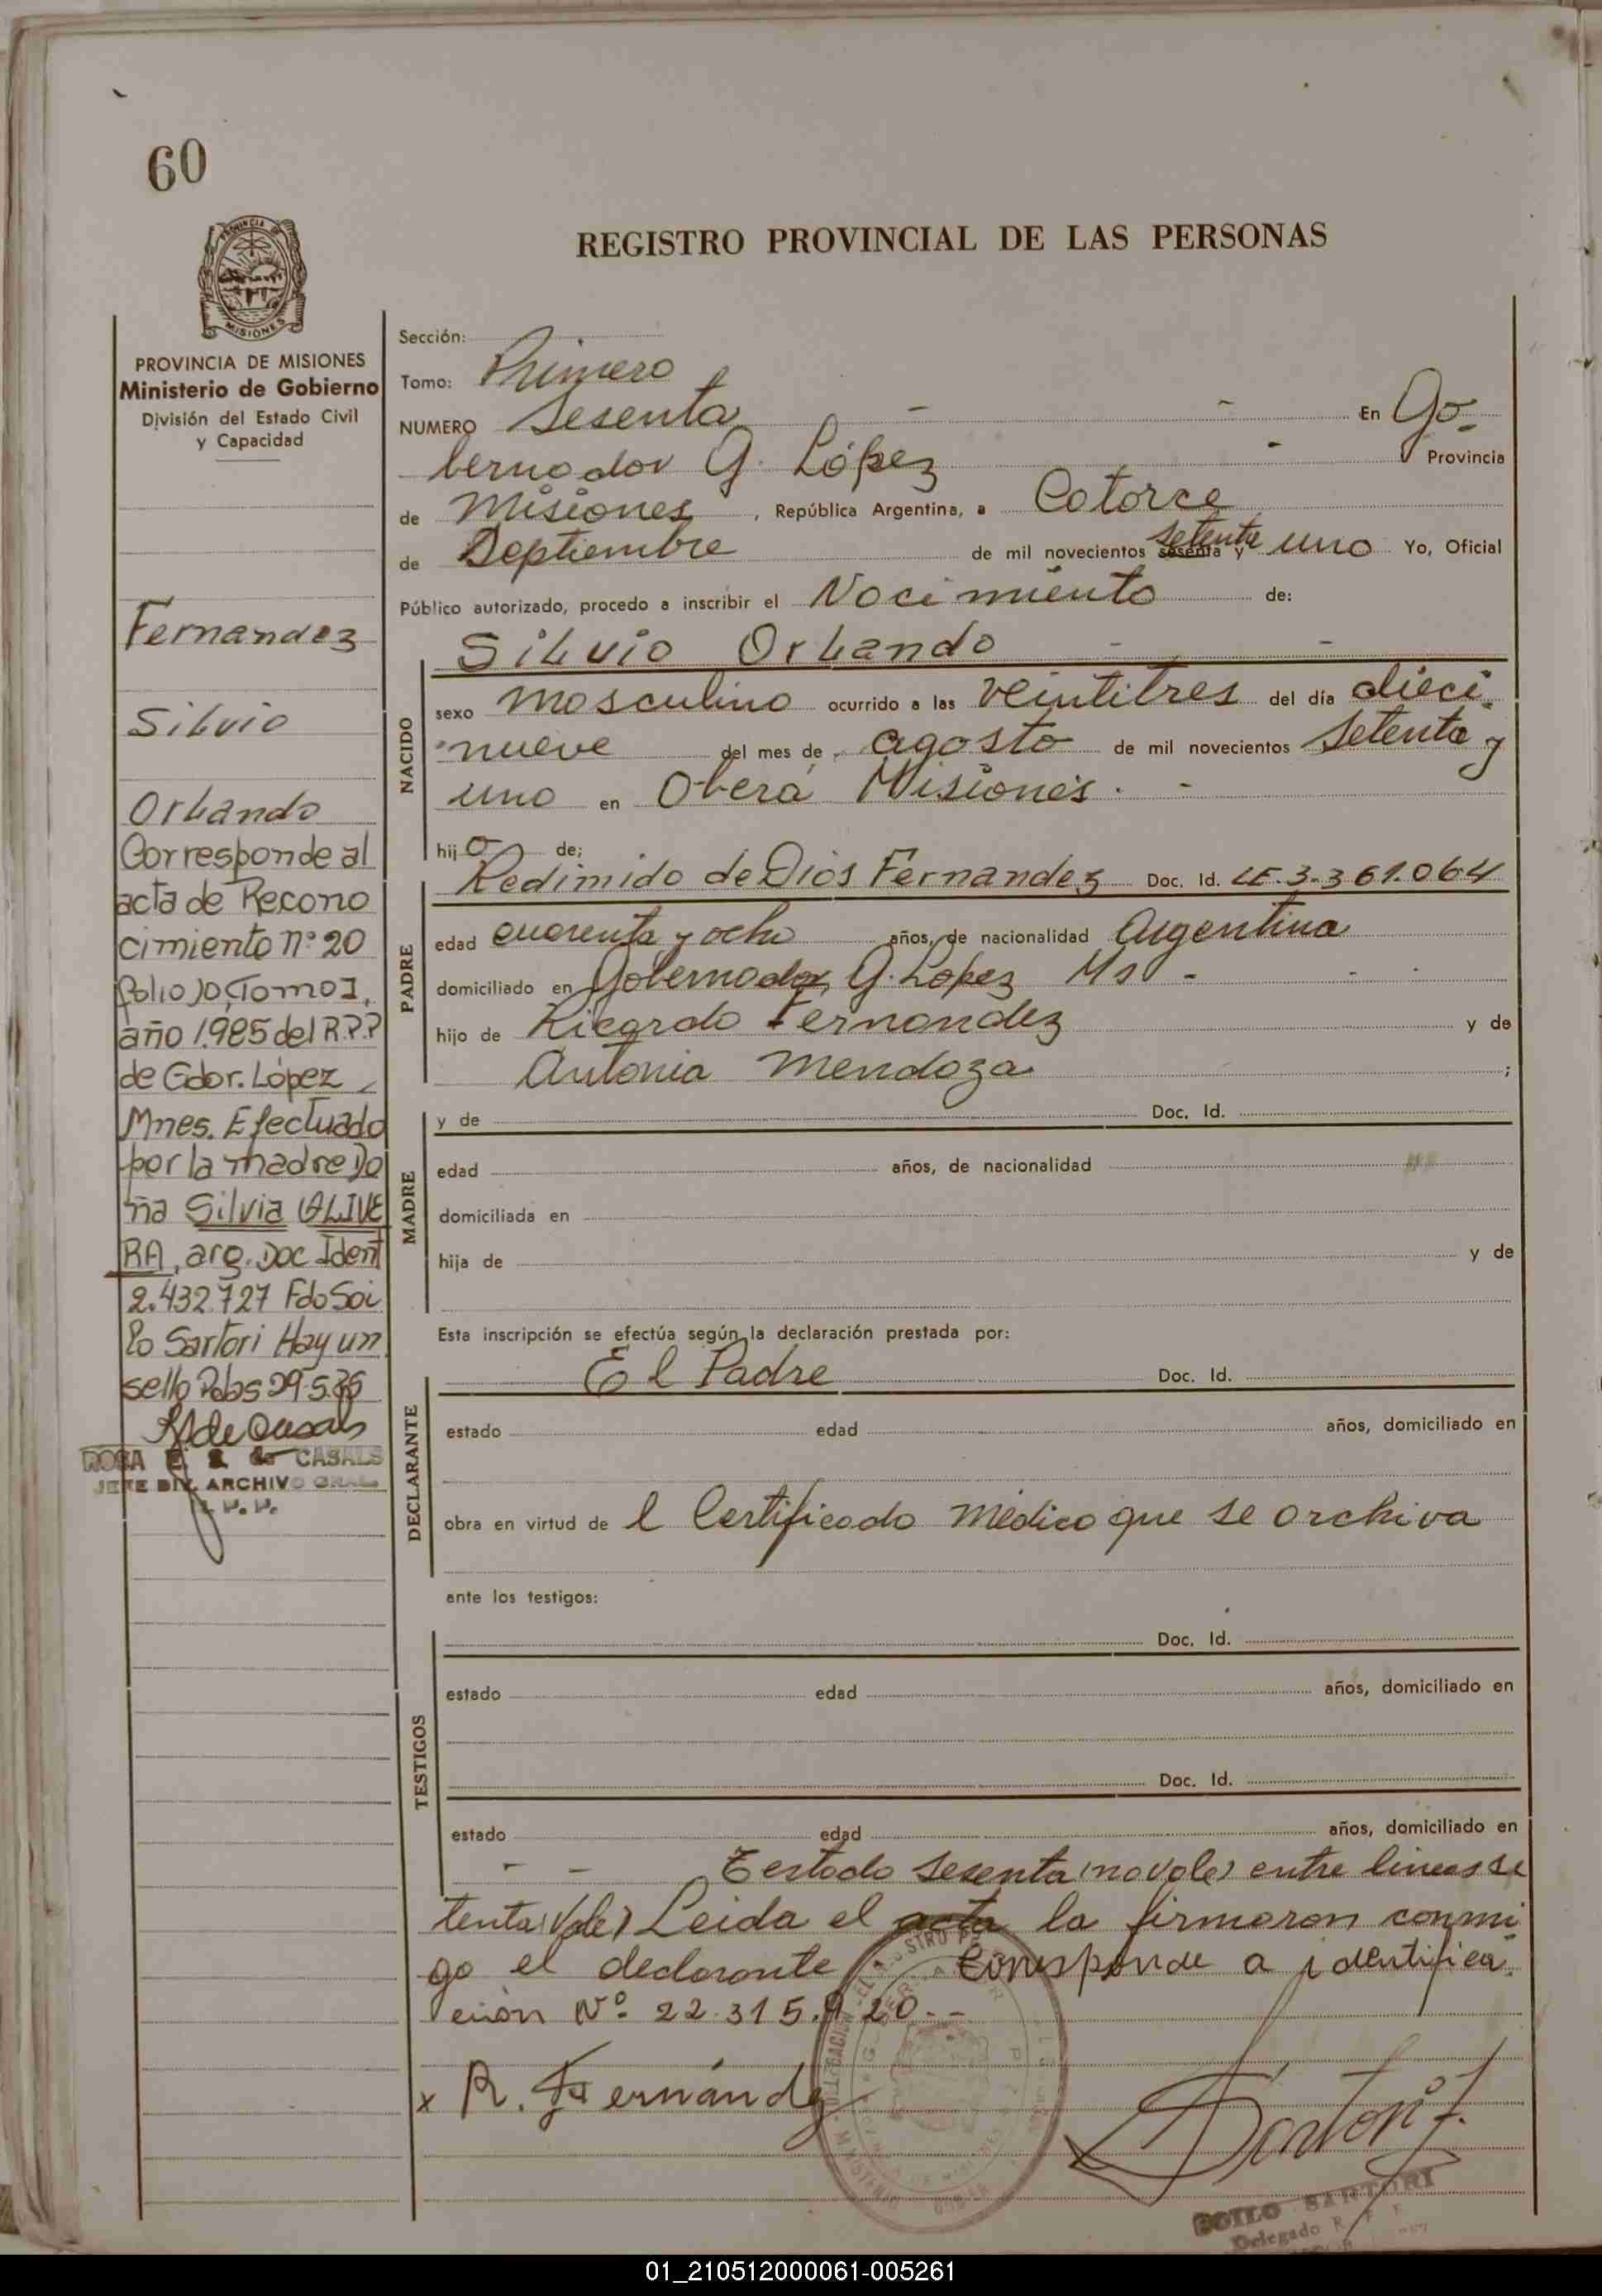 60
PROVINCIA DE
MISIONES
PROVINCIA DE MISIONES
Ministerio de Gobierno
División del Estado Civil
y Capacidad
Fernandez
Silvio
Orlando
Corresponde al
acta de Recono
cimiento n° 20
folio 10, Tomo I,
año 1.985 del R.P.P
de Gdor. López
Mnes. Efectuado
por la madre Do
ña Silvia OLIVE
RA, arg. Doc Ident
2.432.727 Fdo Soi
lo Sartori Hay un
sello Pdas 29-5-
ROSA E. de CASALS
JEFE DIV. ARCHIVO GRAL.
REGISTRO PROVINCIAL DE LAS PERSONAS
Sección:
Tomo: Primero
NUMERO Sesenta - - En Go-
bernador G. López - Provincia
de Misiones, República Argentina, a Catorce
de Septiembre de mil novecientos sesenta y setenta uno Yo, Oficial
Público autorizado, procedo a inscribir el Nacimiento de:
Silvio Orlando - -
NACIDO
sexo masculino ocurrido a las veintitres del día dieci-
nueve del mes de agosto de mil novecientos setenta y
uno en Oberá Misiones. -
hijo de;
Redimido de Dios Fernandez Doc. Id. LE. 3.361.064
PADRE
edad cuarenta y ocho años, de nacionalidad Argentina
domiciliado en Gobernador G. López Ms - - -
hijo de Ricardo Fernandez y de
Antonia Mendoza ;
MADRE
y de Doc. Id.
edad años, de nacionalidad
domiciliada en
hija de y de
Esta inscripción se efectúa según la declaración prestada por:
El Padre Doc. Id.
DECLARANTE
estado edad años, domiciliado en
obra en virtud de l Certificado médico que se archiva
ante los testigos:
TESTIGOS
Doc. Id.
estado edad años, domiciliado en
Doc. Id.
estado edad años, domiciliado en
- - Testado sesenta (no vale) entre lineas se
tenta (vale) Leida el acta la firmaron conmi
go el declarante Corresponde a identifica-
ción N° 22.315.920.--
x R. Fernández
Sartori
SOILO SARTORI
Delegado R. P. P.
01_210512000061-005261